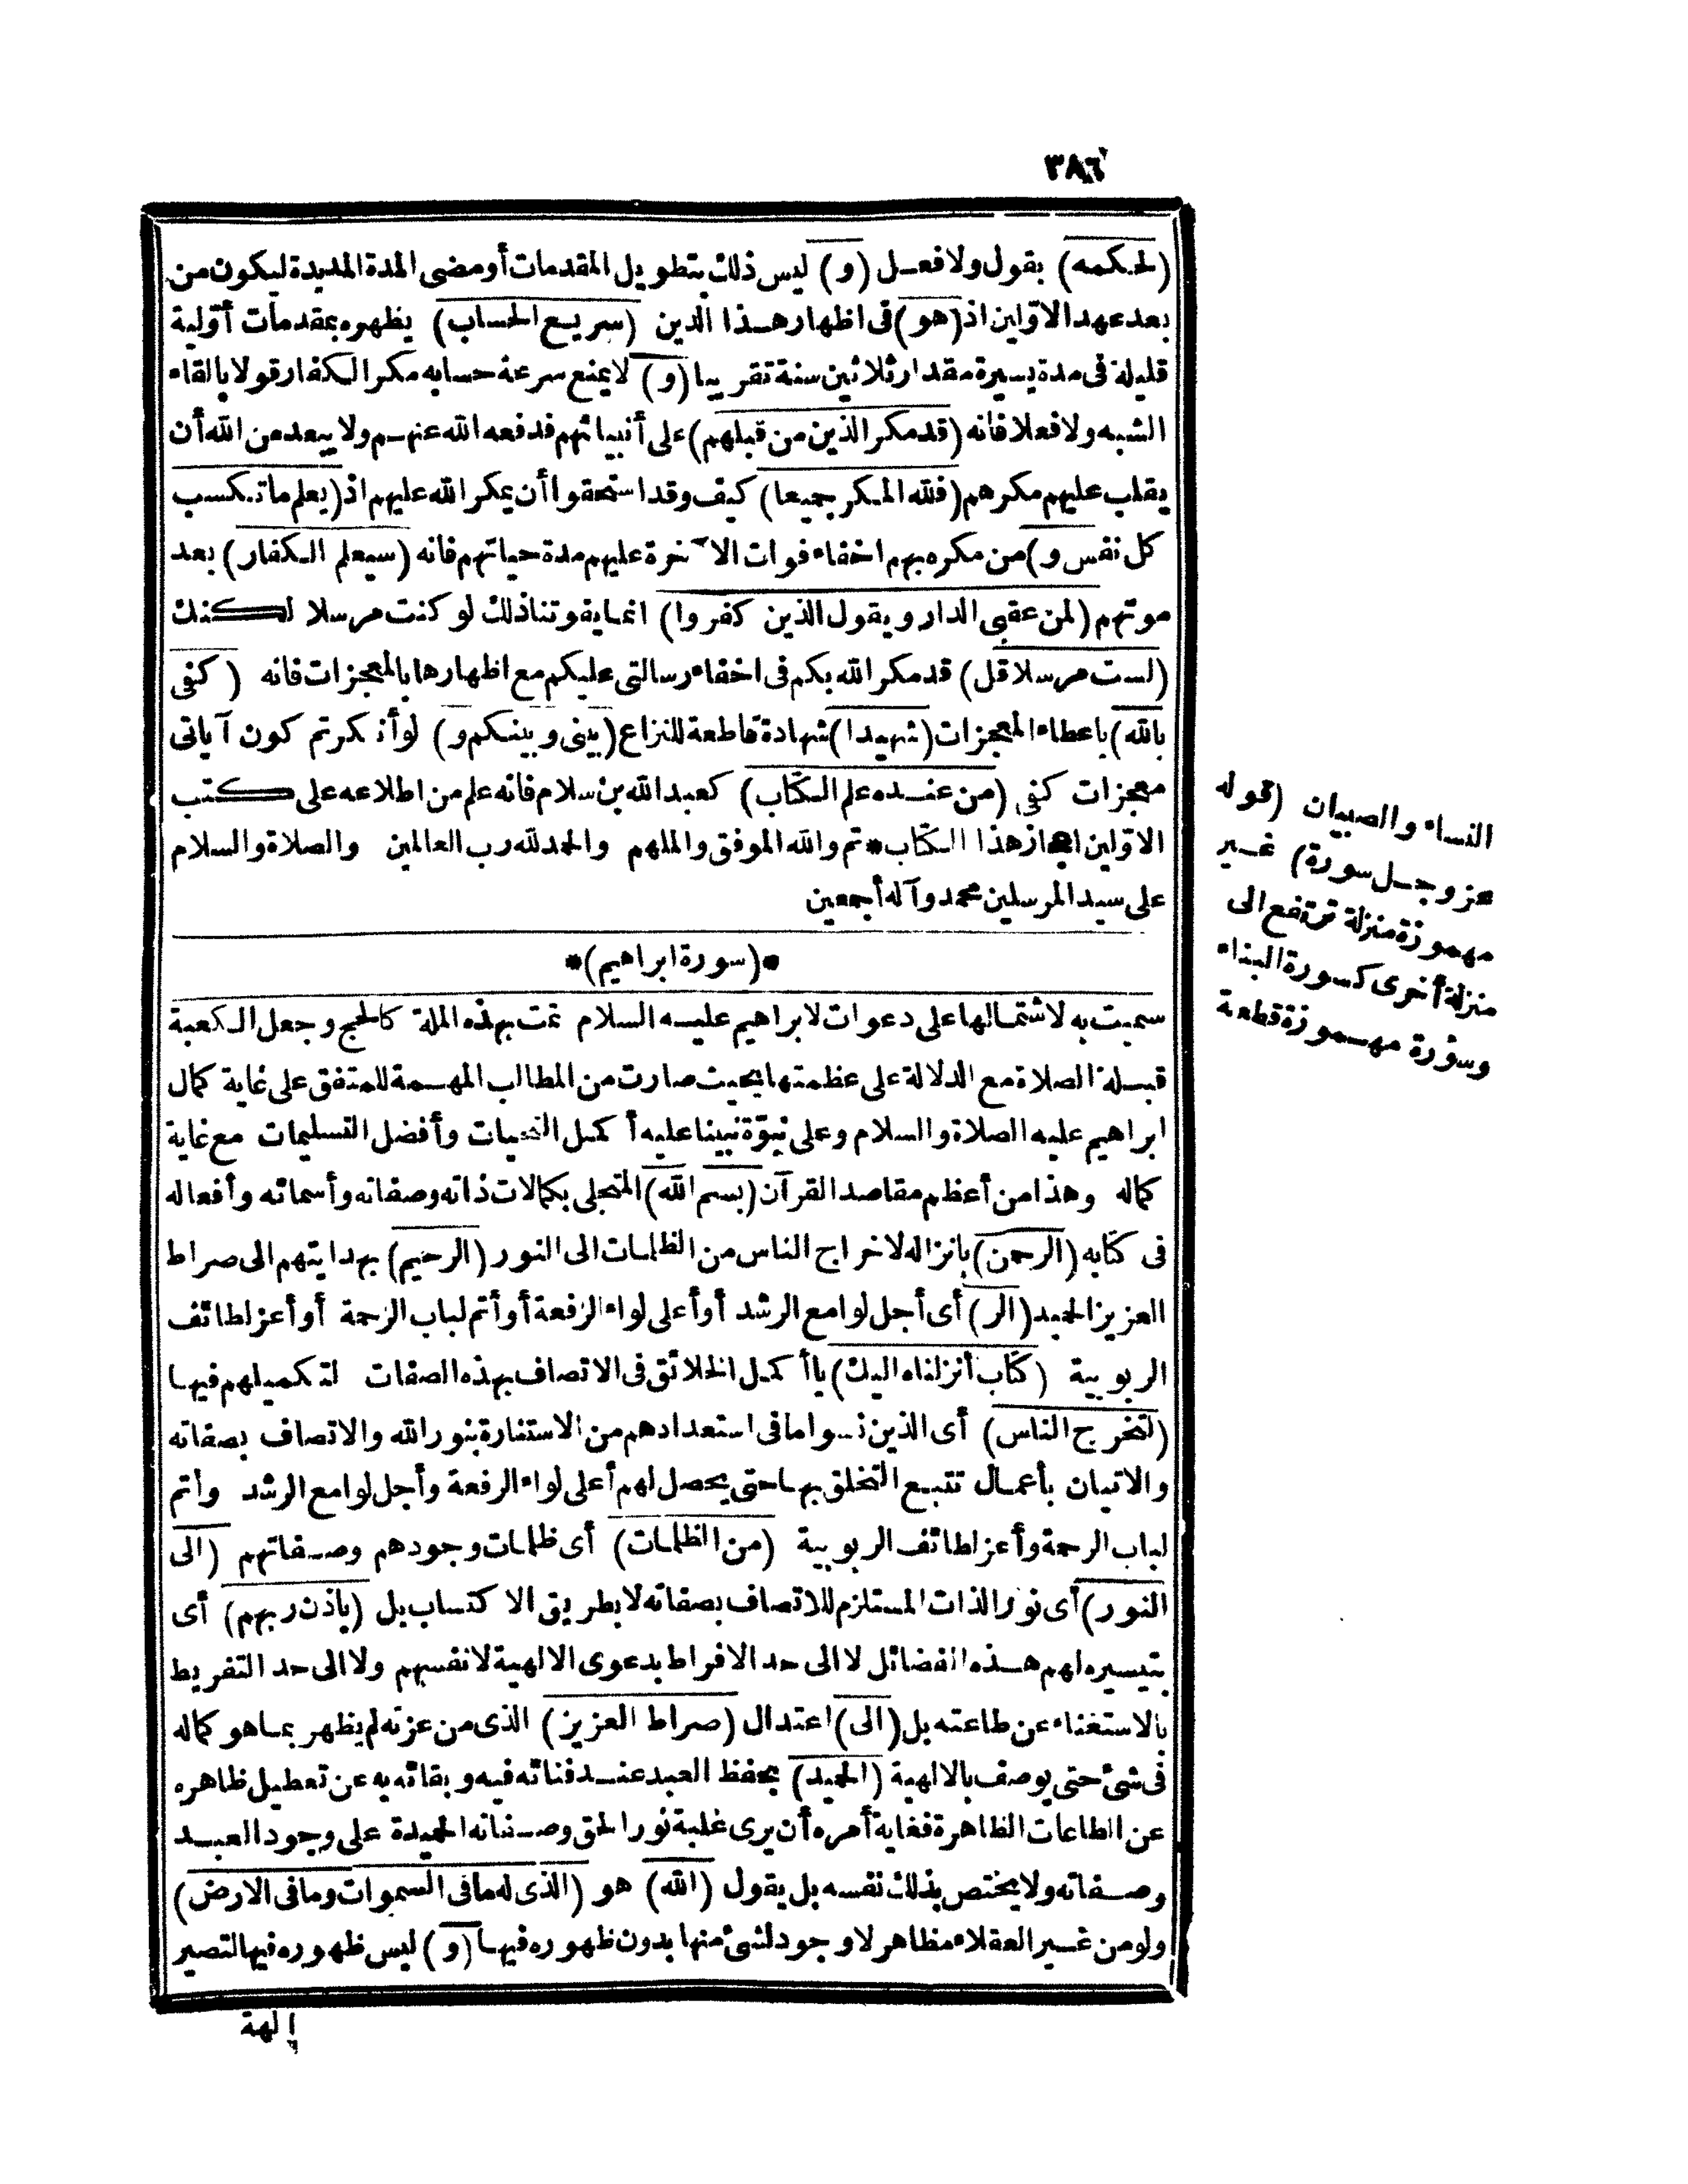 ٣٨٦
(لحكمه) بقول ولا فعل (و) ليس ذلك بتطويل المقدمات أو مضى المدة المديدة ليكون من
بعد عهد الاوّلين اذ (هو) فى اظهار هذا الدين (سريع الحساب) يظهره بمقدمات أوّلية
قليلة فى مدة يسيرة مقدار ثلاثين سنة تقريبا (و) لا يمنع سرعة حسابه مكر الكفار قولا بالقاء
الشبه ولا فعلا فانه (قد مكر الذين من قبلهم) على أنبيائهم فدفعه الله عنهم ولا يبعد من الله أن
يقلب عليهم مكرهم (فلله المكر جميعا) كيف وقد استحقوا أن يمكر الله عليهم اذ (يعلم ما تكسب
كل نفس و) من مكره بهم اخفاء فوات الآخرة عليهم مدة حياتهم فانه (سيعلم الكفار) بعد
موتهم (لمن عقبى الدار ويقول الذين كفروا) انما يفوتنا ذلك لو كنت مرسلا لكنك
(لست مرسلا قل) قد مكر الله بكم فى اخفاء رسالتى عليكم مع اظهارها بالمعجزات فانه (كفى
بالله) باعطاء المعجزات (شهيدا) شهادة قاطعة للنزاع (بينى وبينكم و) لو أنكرتم كون آياتى
معجزات كفى (من عنده علم الكتاب) كعبد الله بن سلام فانه علم من اطلاعه على كتب
الاوّلين اعجاز هذا الكتاب * تم والله الموفق والملهم والحمد لله رب العالمين والصلاة والسلام
على سيد المرسلين محمد وآله أجمعين
*(سورة ابراهيم)*
سميت به لاشتمالها على دعوات لابراهيم عليه السلام تمت بهذه الملة كالحج وجعل الكعبة
قبلة الصلاة مع الدلالة على عظمتها بحيث صارت من المطالب المهمة للمتفق على غاية كمال
ابراهيم عليه الصلاة والسلام وعلى نبوّة نبينا عليه أكمل التحيات وأفضل التسليمات مع غاية
كماله وهذا من أعظم مقاصد القرآن (بسم الله) المتجلى بكمالات ذاته وصفاته وأسمائه وأفعاله
فى كتابه (الرحمن) بانزاله لاخراج الناس من الظلمات الى النور (الرحيم) بهدايتهم الى صراط
العزيز الحميد (الر) أى أجل لوامع الرشد أو أعلى لواء الرفعة أو أتم لباب الرحمة أو أعز لطائف
الربوبية (كتاب أنزلناه اليك) يا أكمل الخلائق فى الاتصاف بهذه الصفات لتكميلهم فيها
(لتخرج الناس) أى الذين نسوا ما فى استعدادهم من الاستنارة بنور الله والاتصاف بصفاته
والاتيان بأعمال تتبع التخلق بها حتى يحصل لهم أعلى لواء الرفعة وأجل لوامع الرشد وأتم
لباب الرحمة وأعز لطائف الربوبية (من الظلمات) أى ظلمات وجودهم وصفاتهم (الى
النور) أى نور الذات المستلزم للاتصاف بصفاته لا بطريق الاكتساب بل (باذن ربهم) أى
بتيسيره لهم هذه الفضائل لا الى حد الافراط بدعوى الالهية لانفسهم ولا الى حد التفريط
بالاستغناء عن طاعته بل (الى) اعتدال (صراط العزيز) الذى من عزته لم يظهر بما هو كماله
فى شئ حتى يوصف بالالهية (الحميد) بحفظ العبد عند فنائه فيه وبقائه به عن تعطيل ظاهره
عن الطاعات الظاهرة فغاية أمره أن يرى غلبة نور الحق وصفاته الحميدة على وجود العبد
وصفاته ولا يختص بذلك نفسه بل يقول (الله) هو (الذى له ما فى السموات وما فى الارض)
ولو من غير العقلاء مظاهر لا وجود لشئ منها بدون ظهوره فيها (و) ليس ظهوره فيها لتصير
إلهة
النساء والصبيان (قوله
عز وجل سورة) غير
مهموزة منزلة ترتفع الى
منزلة أخرى كسورة البناء
وسؤرة مهموزة قطعة